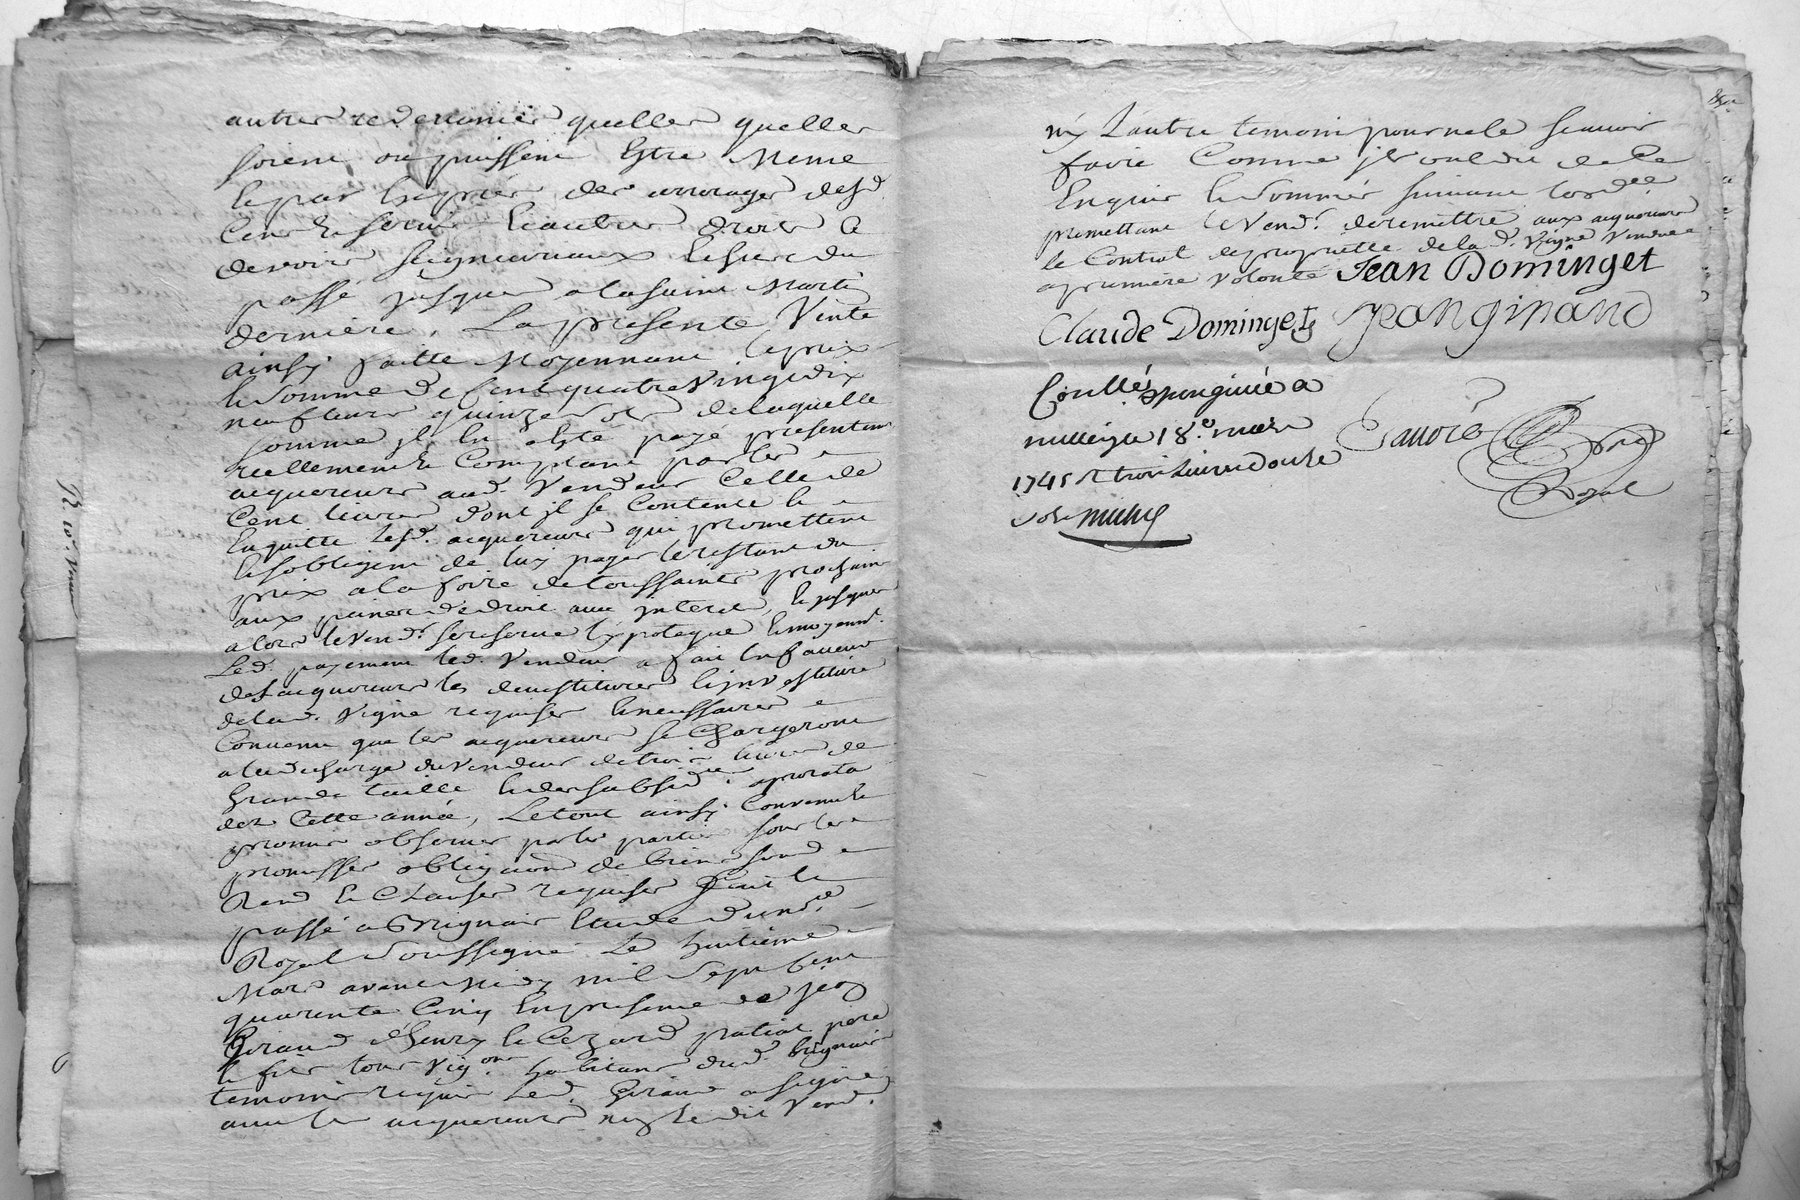 autres redevances quelles quelles
soient ou puissent Estre Meme
des arrerages desd.
Cens et servis Et autres droits &
devoirs seigneuriaux Echus du
passé jusques a la saint Martin
derniere, La presente Vente
ainsy faitte Moyennant le prix
et somme de Cent quatre Vingt dix
neuf livres quinze sols de laquelle
somme il En a Esté payé presentem
reellement et Comptant par les
acquereurs aud. Vendeur Celle de
Cent livres dont jl se Contente &
En quitte lesd. acquereurs qui promettent
et sobligent de luy payer le restant du
prix a la foire de toussaints prochain
aux peines de droit avec jnterets, Et jusques
alors le Vendr. se reserve lhypoteque Et moyennt.
Led. payement led. Vendeur a fait En faveur
des acquereurs les devestitures Et jnvestiture
de lad. Vigne requises Et necessaires
Convenu que les acquereurs se Chargeront
a la decharge du Vendeur de trois livres de
Grande taille Et des subsides a prorata
dez Cette année, Le tout ainsy Convenu et
promis observer par les parties sous les
promesses obligaons de biens soumd
Renon Et Clauses requises Fait et
passé a Brignais Etude dud. nre
Royal soussigné Le huitieme
Mars avant Midy mil sept Cent
quarante Cinq En presence de Jean
Giraud d'henry Et Cezard pratiat pere
Et fils tous Vignons. habitans dud. brignais
temoins requis Led. Giraud a signé
avec les acquereurs non Le dit Vendr.
ny L'autre temoin pour ne le scavoir
faire Comme jls ont dit de Ce
Enquis Et sommés suivant lordce
promettant le Vendr. de remettre aux acquereurs
le Contrat de proprieté de lad. Vigne Vendue
a premiere Volonté Jean Dominget
Claude Dominget Jean giraud
Conllé Et a
18e mars
1745 R trois livres douze
sols
Royal